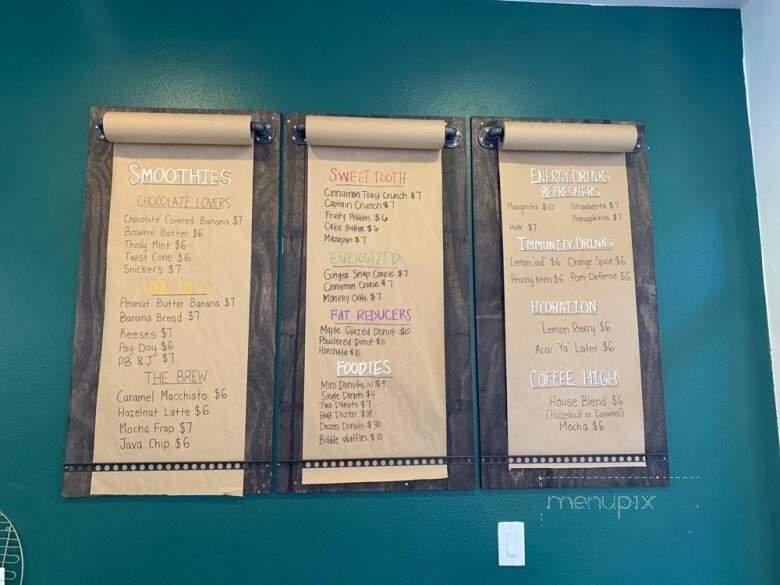 SMOOTHIES
CHOCOLATE LOVERS
Chocolate Covered Banana $7
Brownie Batter $6
Thinly Mint $6
Twist Cone $6
Snickers $7
Peanut Butter Banana $7
Banana Bread $7
Reeses $7
Pay Day $6
PB & J $7
THE BREW
Caramel Macchiato $6
Hazelnut Latte $6
Mocha Frap $7
Java Chip $6
SWEET TOOTH
Cinnamon Toast Crunch $7
Captain Crunch $7
Fruity Pebbles $6
Cake Batter $6
Mazapan $7
ENERGIZED
Ginger Snap Cookie $7
Cinnamon Cookie $7
Monkey Oats $7
FAT REDUCERS
Maple Glazed Donut $10
Powdered Donut $10
Horchata $10
FOODIES
Mini Donuts $9
Single Donuts $4
Two Donuts $7
Half Dozen $18
Dozen Donuts $30
Bubble Waffles $10
ENERGY DRINK
REFRESHERS
Mangorita $10 Strawberita $7
Peeapplekiss $7
Hulk $7
IMMUNITY DRINKS
Lemon'aid $6 Orange Spice $6
Peachy Keen $6 Pom Defense $6
HYDRATION
Lemon Berry $6
Acai 'Ya' Later $6
COFFEE HIGH
House Blend $6
(Hazelnut or Caramel)
Mocha $6
menupix